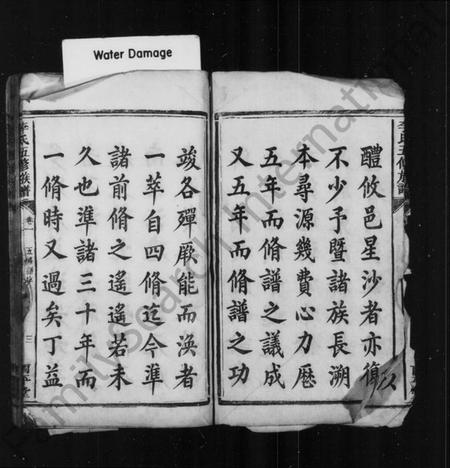 Water Damage
醴攸邑星沙者亦復
不少予暨諸族長溯
本尋源幾費心力歷
五年而脩譜之議成
又五年而脩譜之功
竣各殫厥能而渙者
一萃自四脩迄今準
諸前脩之遙遙若未
久也準諸三十年而
一脩時又過矣丁益
李氏五修族譜
李氏五修族譜
卷一
三
FamilySearch International